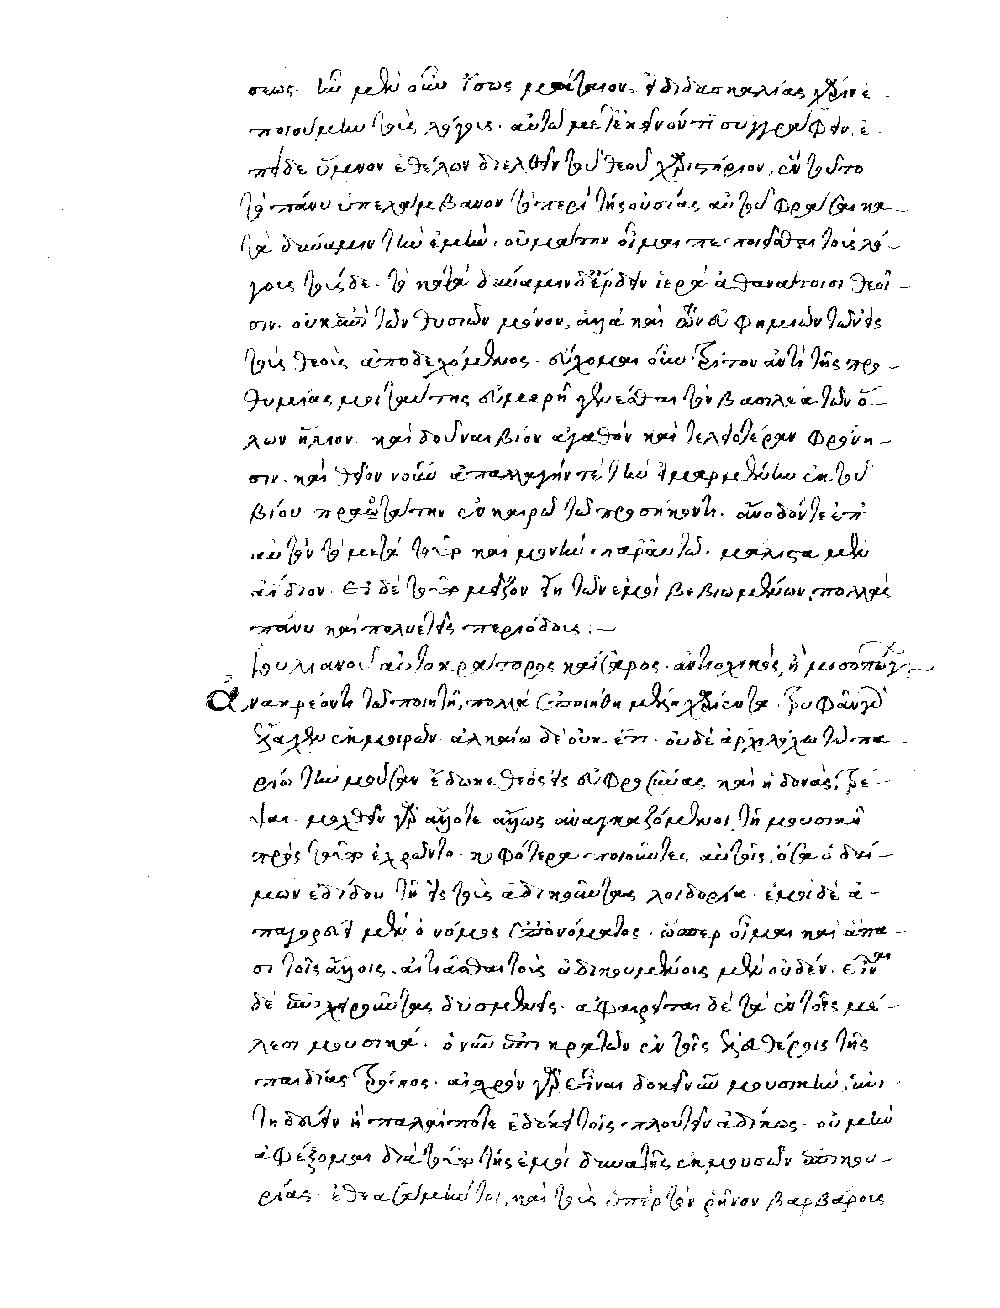 σεως. τὴν μὲν οὖν ἴσως μάταιον, εἰ διδασκαλίας χάριν ἐ
ποιούμην τοὺς λόγους. αὐτῷ μετ' ἐκεῖνον τί συγγράφειν, ἐ
πεὶ δὲ ὕμνον ἐθέλων διελθεῖν τοῦ θεοῦ χαριστήριον, ἐν τούτῳ
τὸ πάνυ ὑπελάμβανον τὸ περὶ τῆς οὐσίας αὐτοῦ φράσαι κα
τὰ δύναμιν τὴν ἐμὴν. οὐ μάτην οἶμαι πεποιῆσθαι τοὺς λό
γους τούσδε. τὸ κατὰ δύναμιν δ' ἔρδειν ἱερὰ ἀθανάτοισι θεοῖ
σιν. οὐκ ἐπὶ τῶν θυσιῶν μόνον, ἀλλὰ καὶ τῶν εὐφημιῶν τῶν εἰς
τοὺς θεοὺς ἀποδεχόμενος. εὔχομαι οὖν τρίτον ἀντὶ τῆς προ
θυμίας μοι ταύτης εὐμενῆ γενέσθαι τὸν βασιλέα τῶν ὅ
λων ἥλιον. καὶ δοῦναι βίον ἀγαθὸν καὶ τελειοτέραν φρόνη
σιν. καὶ θεῖον νοῦν ἀπαλλαγήν τε τὴν εἱμαρμένην ἐκ τοῦ
βίου πραοτάτην ἐν καιρῷ τῷ προσήκοντι. ἄνοδόν τε ἐπ'
αὐτὸν τὸ μετὰ τοῦτο καὶ μονὴν παρ' αὐτῷ. μάλιστα μὲν
ἀΐδιον. εἰ δὲ τοῦτο μεῖζον εἴη τῶν ἐμοὶ βεβιωμένων, πολλὰς
πάνυ καὶ πολυετεῖς περιόδους:—
Ἰουλιανοῦ αὐτοκράτορος καίσαρος. ἀντιοχικὸς, ἢ μισοπώγων
Ἀνακρέοντι τῷ ποιητῇ, πολλὰ ἐποιήθη μέλη χαρίεντα. τρυφᾶν γὰρ
ἔλαχεν ἐκ μοιρῶν. ἀλκαίῳ δὲ οὐκ ἔτι. οὐδὲ ἀρχιλόχῳ τῷ πα
ρίῳ τὴν μοῦσαν ἔδωκε θεὸς εἰς εὐφροσύνας καὶ ἡδονὰς τρέ
ψαι. μοχθεῖν γὰρ ἄλλοτε ἄλλως ἀναγκαζόμενοι, τῇ μουσικῇ
πρὸς τοῦτο ἐχρῶντο. κουφότερα ποιοῦντες αὐτοῖς, ὅσα ὁ δαί
μων ἐδίδου τῇ εἰς τοὺς ἀδικοῦντας λοιδορίᾳ. ἐμοὶ δὲ ἀ
παγορεύει μὲν ὁ νόμος ἐπ' ὀνόματος. ὥσπερ οἶμαι καὶ ἅπα
σι τοῖς ἄλλοις. αἰτιᾶσθαι τοὺς ἀδικουμένοις μὲν οὐδέν. εἶναι
δὲ ἐπιχειροῦντας δυσμενεῖς. ἀφαιρεῖται δὲ τὰ ἐν τοῖς μέ
λεσι μουσικά. ὁ νῦν ἐπικρατῶν ἐν τοῖς ἐλευθέροις τῆς
παιδίας τρόπος. αἰσχρὸν γὰρ εἶναι δοκεῖ νῦν μουσικὴν ἐπι
τηδεύειν ἢ πάλαι ποτὲ ἐδόκει τοῖς πλουτεῖν ἀδίκως. οὐ μὴν
ἀφέξομαι διὰ τοῦτο τῆς ἐμοὶ δυνατῆς ἐκ μουσῶν ἐπικου
ρίας. ἐθεασάμην τοι, καὶ τοὺς ὑπὲρ τὸν ῥῆνον βαρβάρους